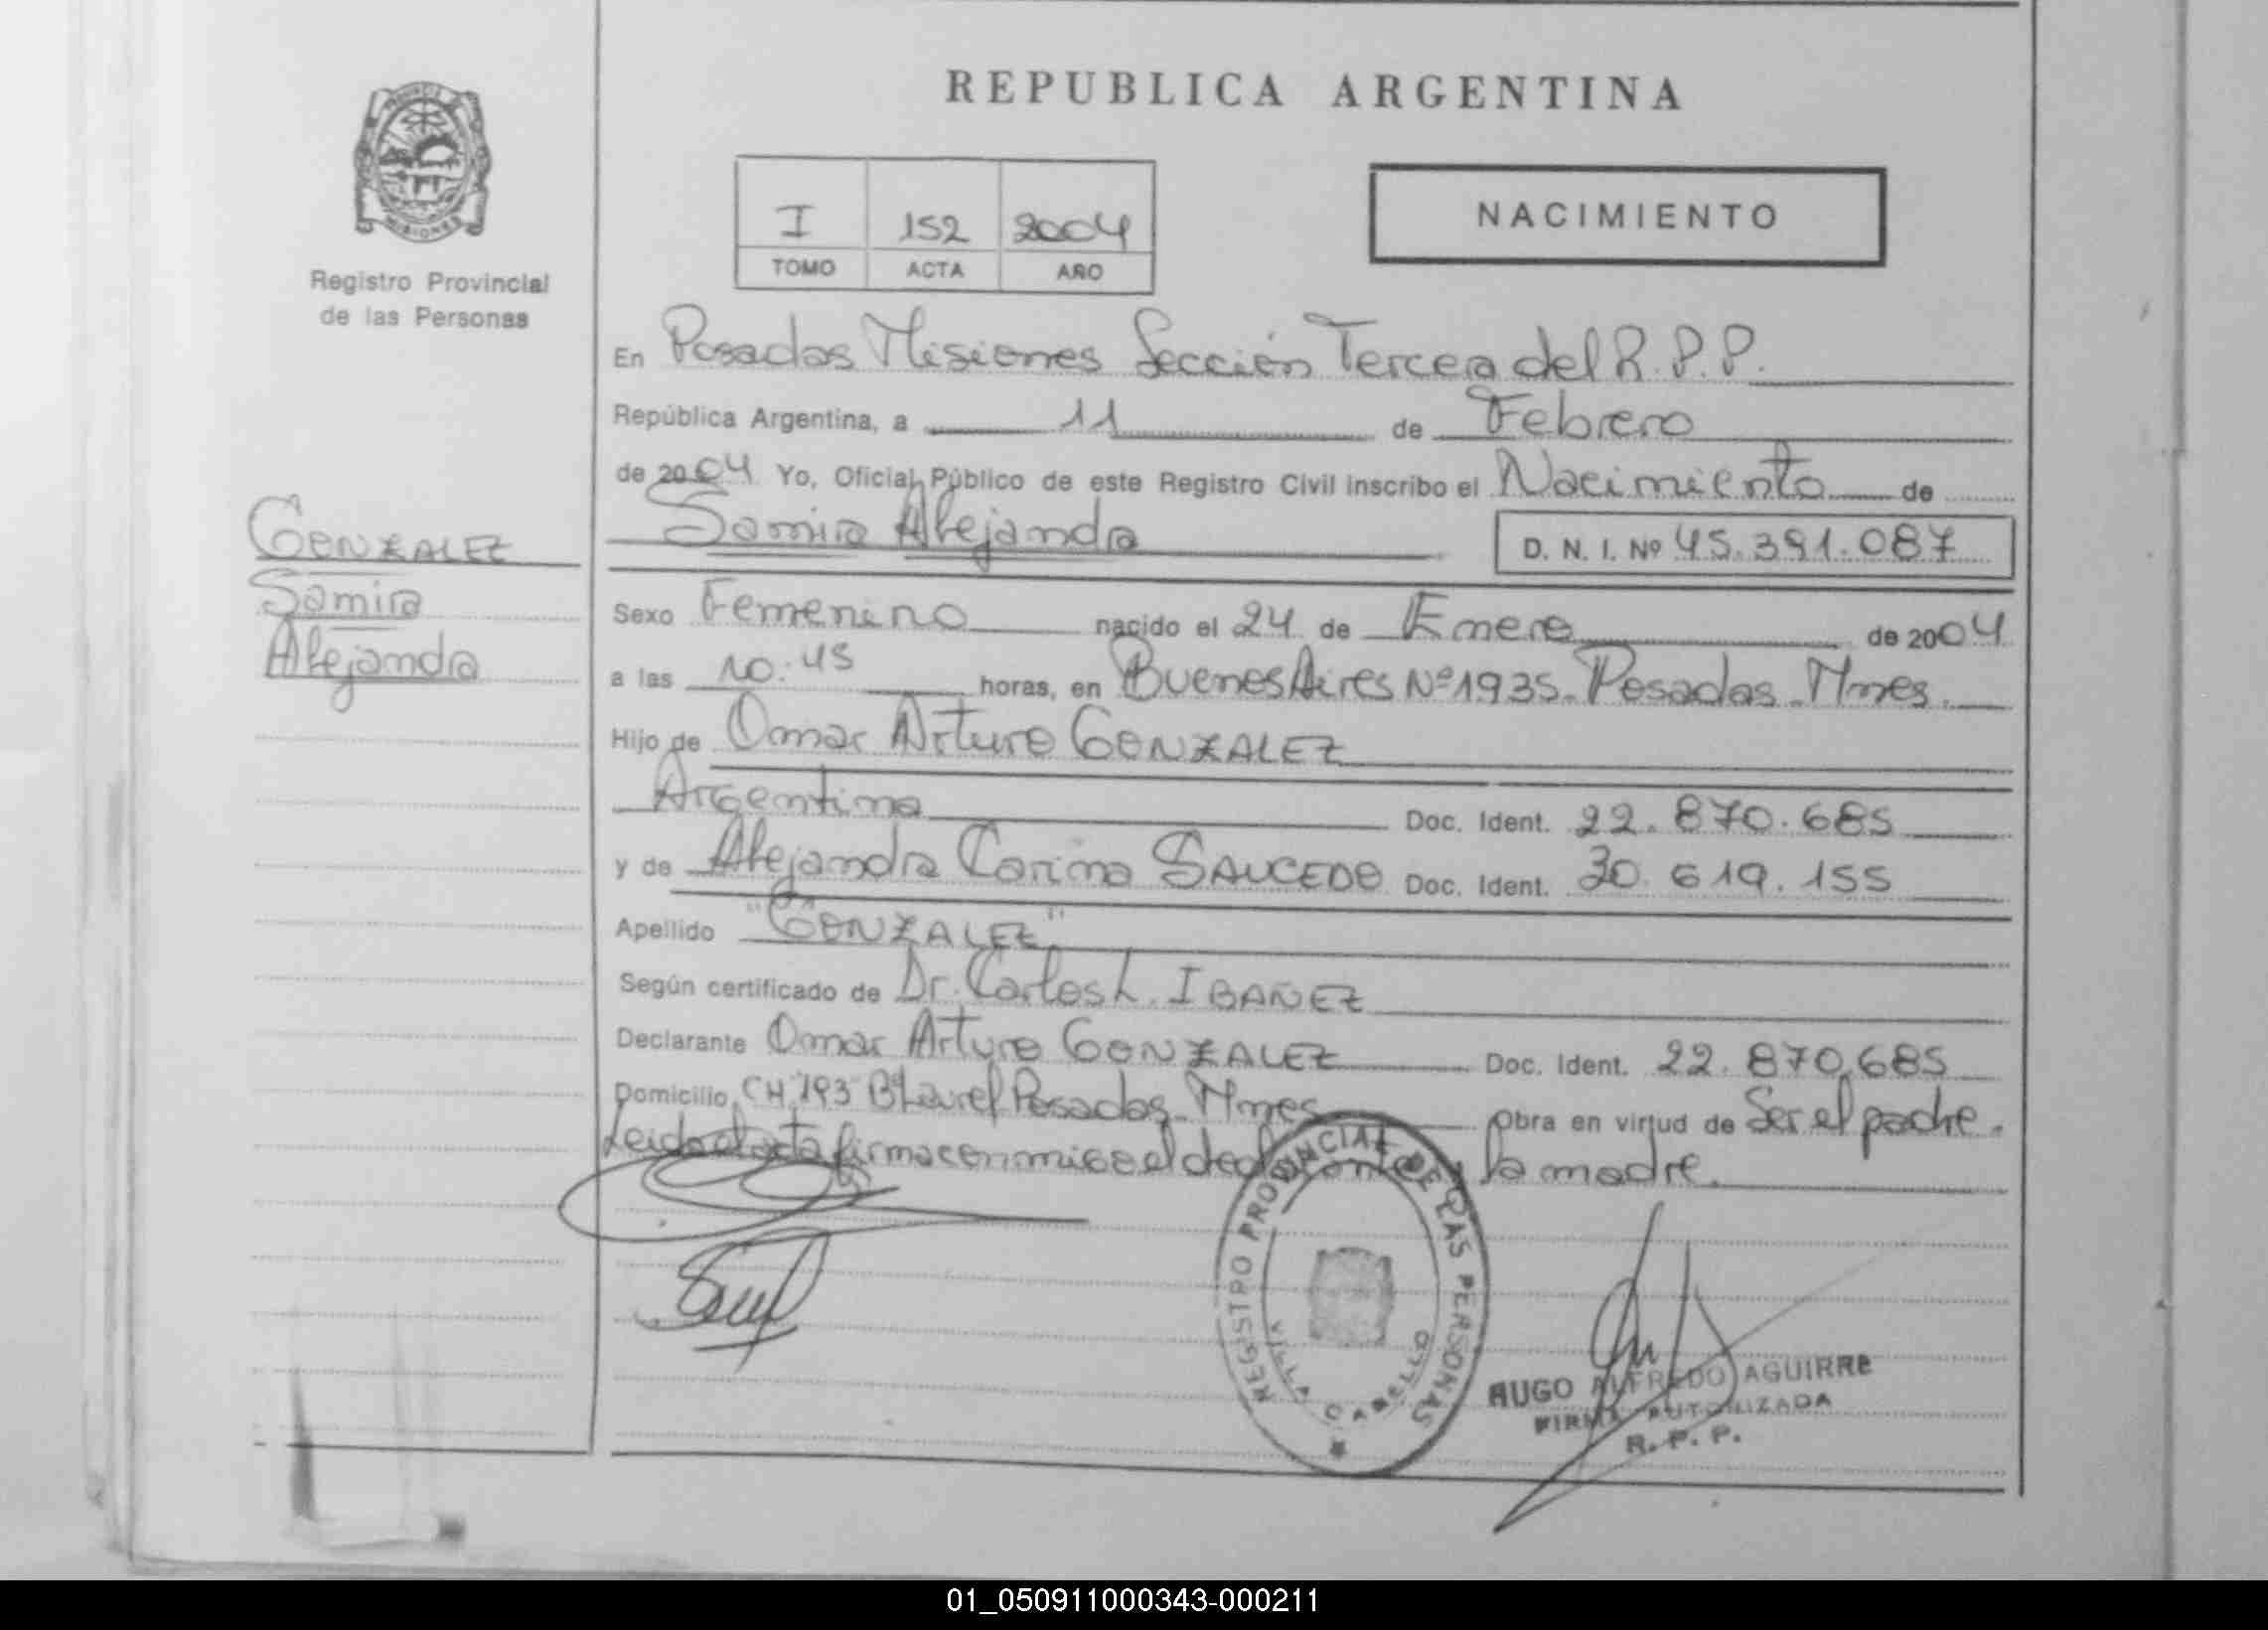 REPUBLICA ARGENTINA
PROVINCIA DE MISIONES
Registro Provincial
de las Personas
I 152 2004
TOMO ACTA AÑO
NACIMIENTO
En Posadas Misiones Sección Tercera del R.P.P.
República Argentina, a 11 de Febrero
de 2004 Yo, Oficial Público de este Registro Civil inscribo el Nacimiento de
Samira Alejandra D. N. I. Nº 45.391.087
GONZALEZ
Samira
Alejandra
Sexo Femenino nacido el 24 de Enero de 2004
a las 10:45 horas, en Buenos Aires Nº 1935. Posadas. Mnes.
Hijo de Omar Arturo GONZALEZ
Argentina Doc. Ident. 22.870.685
y de Alejandra Carina SAUCEDO Doc. Ident. 30.619.155
Apellido "GONZALEZ"
Según certificado de Dr. Carlos L. IBAÑEZ
Declarante Omar Arturo GONZALEZ Doc. Ident. 22.870.685
Domicilio CH 193 Bº Laurel Posadas. Mnes Obra en virtud de Ser el padre.
Leida el acta firma conmigo el declarante y la madre.
REGISTRO PROVINCIAL DE LAS PERSONAS
VILLA CABELLO
HUGO ALFREDO AGUIRRE
FIRMA AUTORIZADA
R. P. P.
01_050911000343-000211